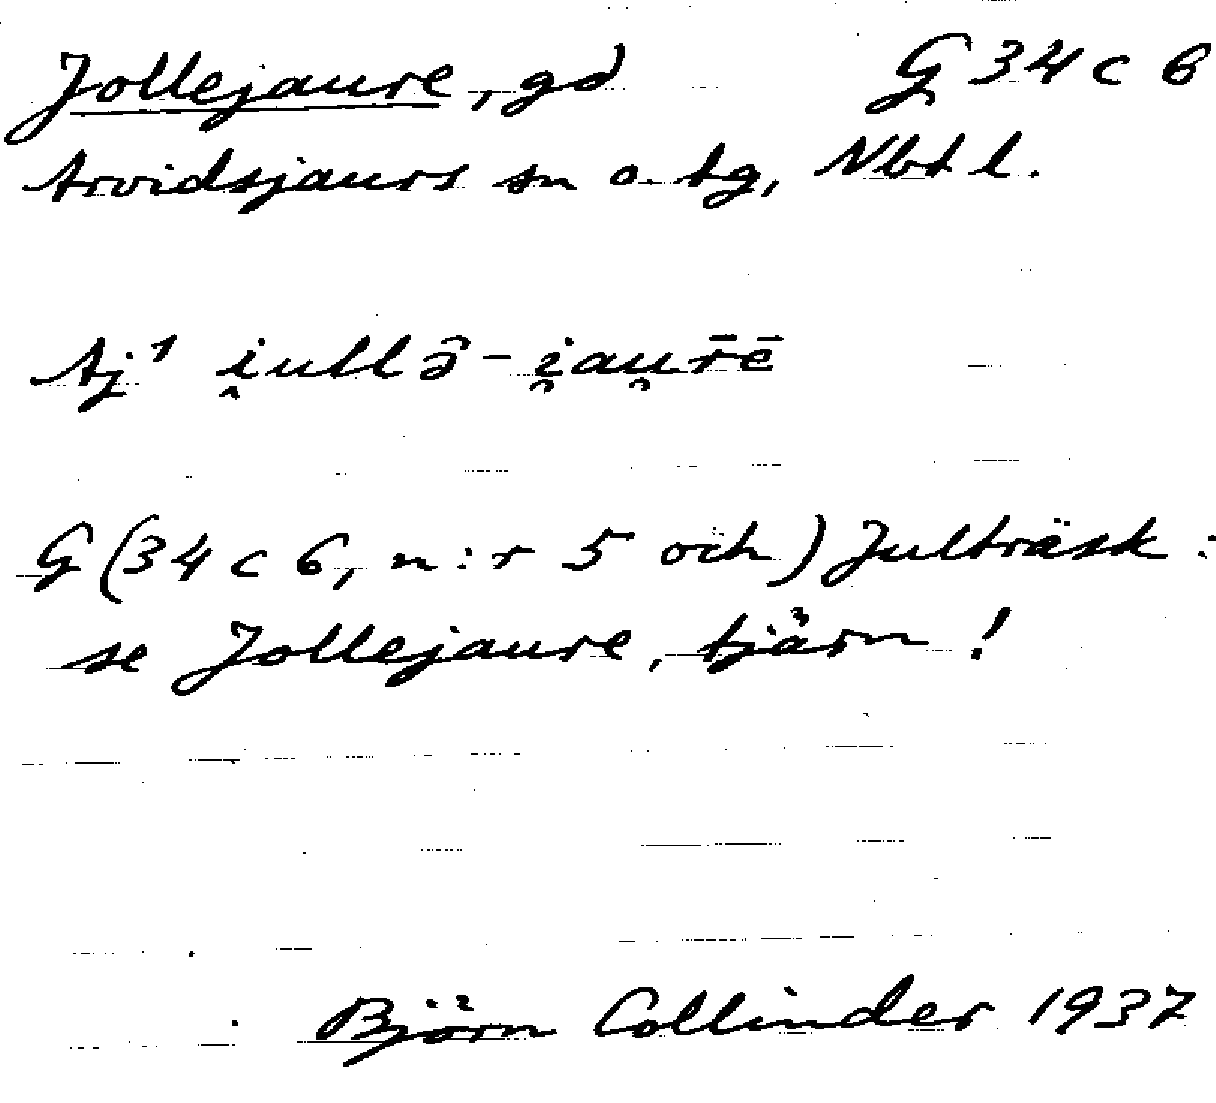 Jollejaure, gd G 34 c 6
Arvidsjaurs sn o. tg, Nbt l.
Aj¹ i̭ullə̂-i̯au̯r̄ē
G (34 c 6, n:r 5 och) Jultträsk:
se Jollejaure, tjärn!
Björn Collinder 1937